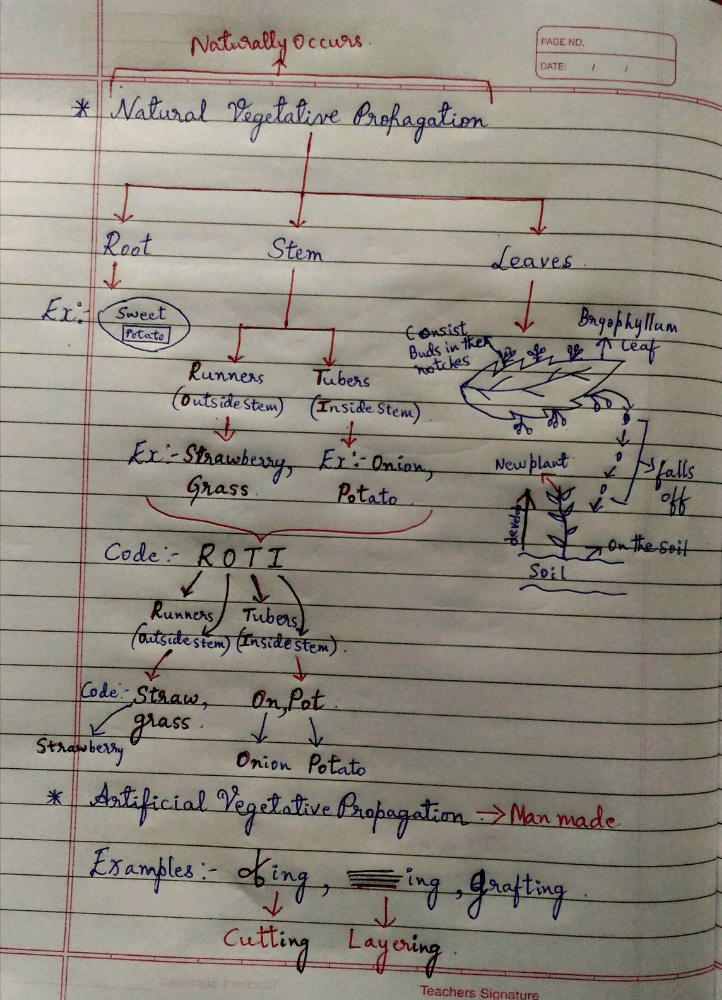 Naturally Occurs.
PAGE NO.
DATE: / /
* Natural Vegetative Propagation
Root Stem Leaves
Ex:- Sweet Potato
Consist Buds in their notches
Bryophyllum leaf
Runners Tubers
(Outside stem) (Inside Stem)
Ex:- Strawberry, Grass
Ex:- Onion, Potato
New plant
falls off
develop
On the soil
Soil
Code:- ROTI
Runners Tubers
(Outside stem) (Inside stem).
Code:- Straw, grass.
On, Pot
Strawberry
Onion Potato
* Artificial Vegetative Propagation → Man made
Examples:- ing, ing, grafting.
Cutting Layering.
Teachers Signature